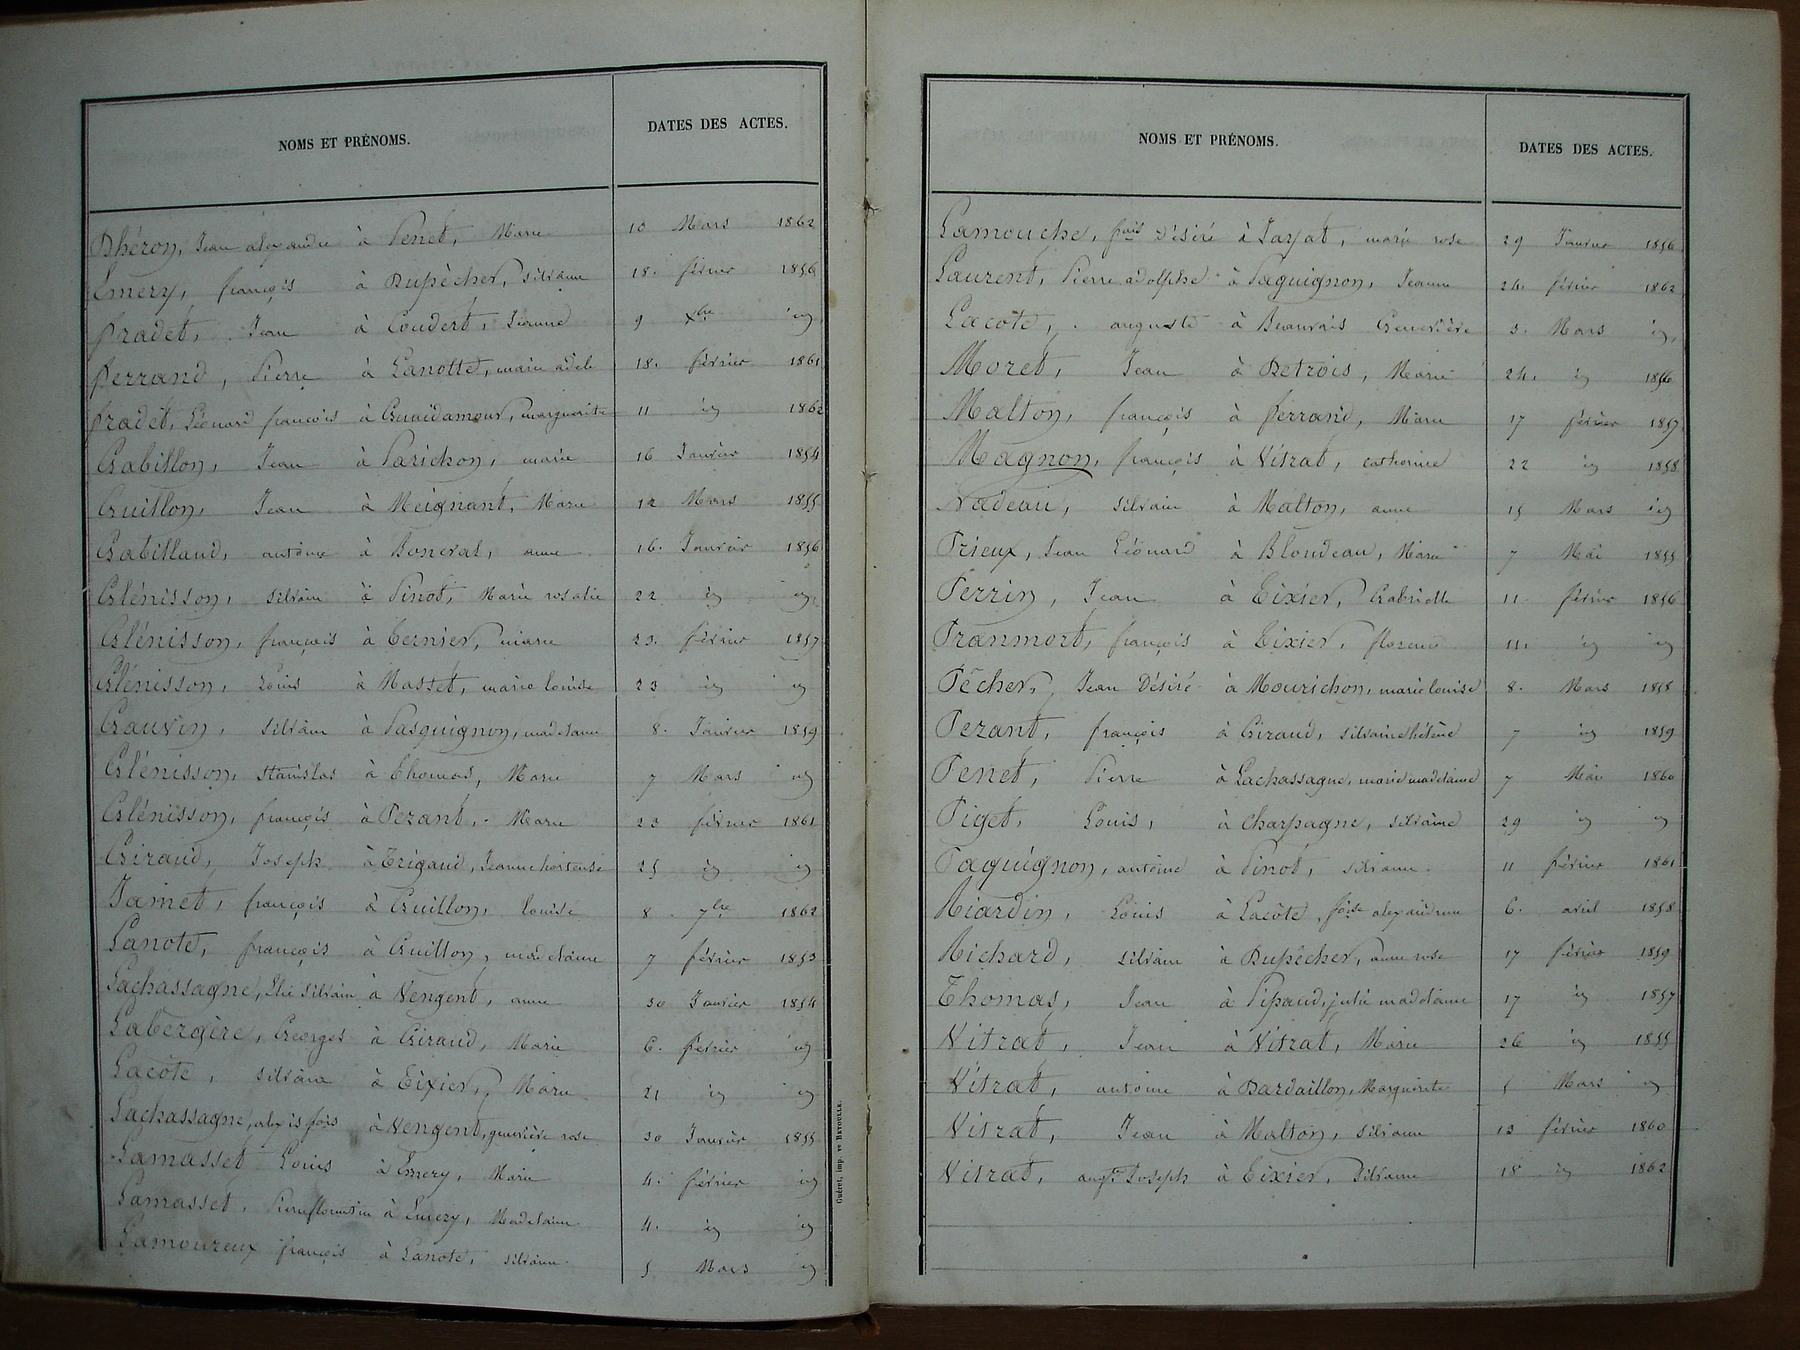 NOMS ET PRÉNOMS. DATES DES ACTES.
Dhéron, Jean alexandre à Penet, Marie 10 Mars 1862
Emery, françois à Dupècher, silvaine 18. février 1856
fradet, Jean à Coudert, Jeanne 9 Xbre id
ferrand, Pierre à Lanotte, marie adèle 18. février 1861
fradet, Léonard françois à Guaidamour, marguerite 11 id 1862
Gabillon, Jean à Parichon, marie 16 Janvier 1854
Guillon, Jean à Meignant, Marie 12 Mars 1855
Gabillaud, antoine à Bonerat, anne 16. Janvier 1856
Glénisson, silvain à Pinot, Marie rosalie 22 id id
Glénisson, françois à Bernier, marie 23. février 1857
Glénisson, Louis à Masset, marie louise 23 id id
Gauvin, silvain à Pasquignon, madelaine 8. Janvier 1859
Glénisson, stanislas à Thomas, Marie 7 Mars id
Glénisson, françois à Pezant, Marie 23 février 1861
Giraud, Joseph à Trigaud, Jeanne hortense 25 id id
Jamet, françois à Guillon, louise 8 7bre 1862
Lanote, françois à Guillon, madelaine 7 février 1853
Lachassagne, Elie silvain à Vengent, anne 30 Janvier 1854
Labergère, Georges à Giraud, Marie 6. février id
Lacôte, silvain à Tixier, Marie 21 id id
Lachassagne, alexis fçois à Vengent, geneviève rose 30 Janvier 1855
Lamasset Louis à Emery, Marie 4. février id
Lamasset, Pierre florentin à Emery, Madelaine 4. id id
Lamoureux françois à Lanote, silvaine 5 Mars id
Guéret, imp. ve BETOULLE.
NOMS ET PRÉNOMS. DATES DES ACTES.
Lamouche, fçois Désiré à Jarjat, marie rose 29 Janvier 1856
Laurent, Pierre adolphe à Paquignon, Jeanne 24. février 1862
Lacote, auguste à Beauvais Geneviève 3. Mars id
Moret, Jean à Detrois, Marie 24. id 1856
Malton, françois à ferrand, Marie 17 février 1857
Magnon, françois à Vitrat, catherine 22 id 1858
Nadeau, silvain à Malton, anne 15 Mars id
Prieux, Jean Léonard à Blondeau, Marie 7 Mai 1855
Perrin, Jean à Tixier, Gabrielle 11 février 1856
Pranmort, françois à Tixier, florence 11. id id
Pècher, Jean Désiré à Mourichon, marie louise 8. Mars 1858
Pezant, françois à Giraud, silvaine hélène 7 id 1859
Penet, Pierre à Lachassagne, marie madelaine 7 Mai 1860
Piget, Louis, à Charpagne, silvaine 29 id id
Paquignon, antoine à Pinot, silvaine 11 février 1861
Riardin, Louis à Lacôte, fçoise alexandrine 6. avril 1858
Richard, silvain à Dupècher, anne rose 17 février 1859
Thomas, Jean à Pipaud, julie madelaine 17 id 1857
Vitrat, Jean à Vitrat, Marie 26 id 1855
Vitrat, antoine à Dardaillon, Marguerite 5 Mars id
Vitrat, Jean à Malton, silvaine 13 février 1860
Vitrat, augte Joseph à Tixier, Silvaine 18 id 1862